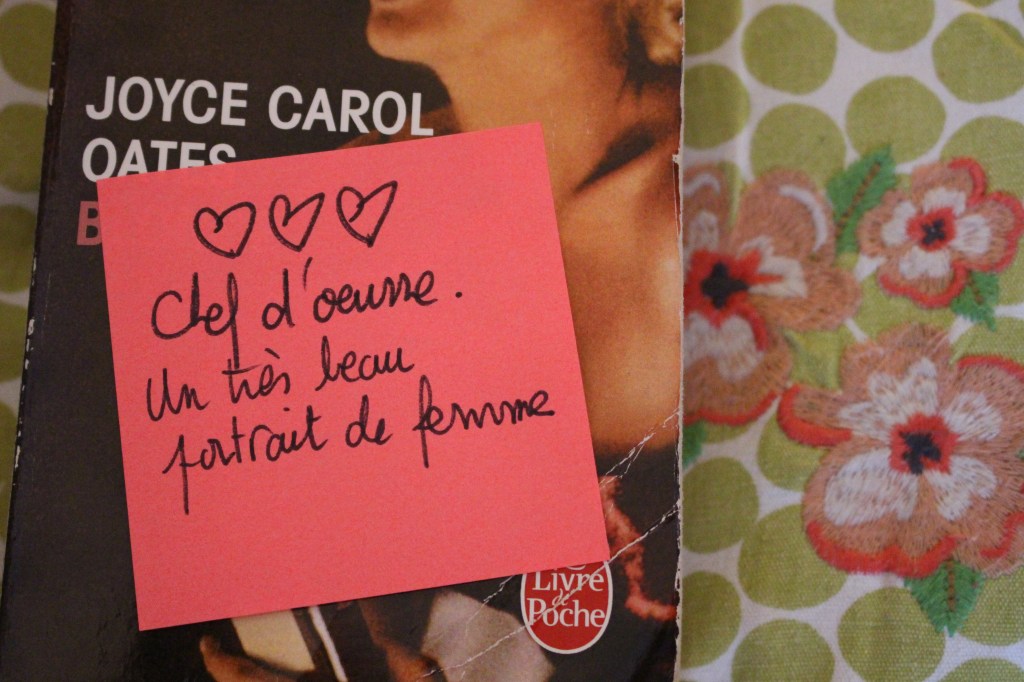 JOYCE CAROL
OATES
B
Chef d'oeuvre.
Un très beau
portrait de femme
Livre
de
Poche